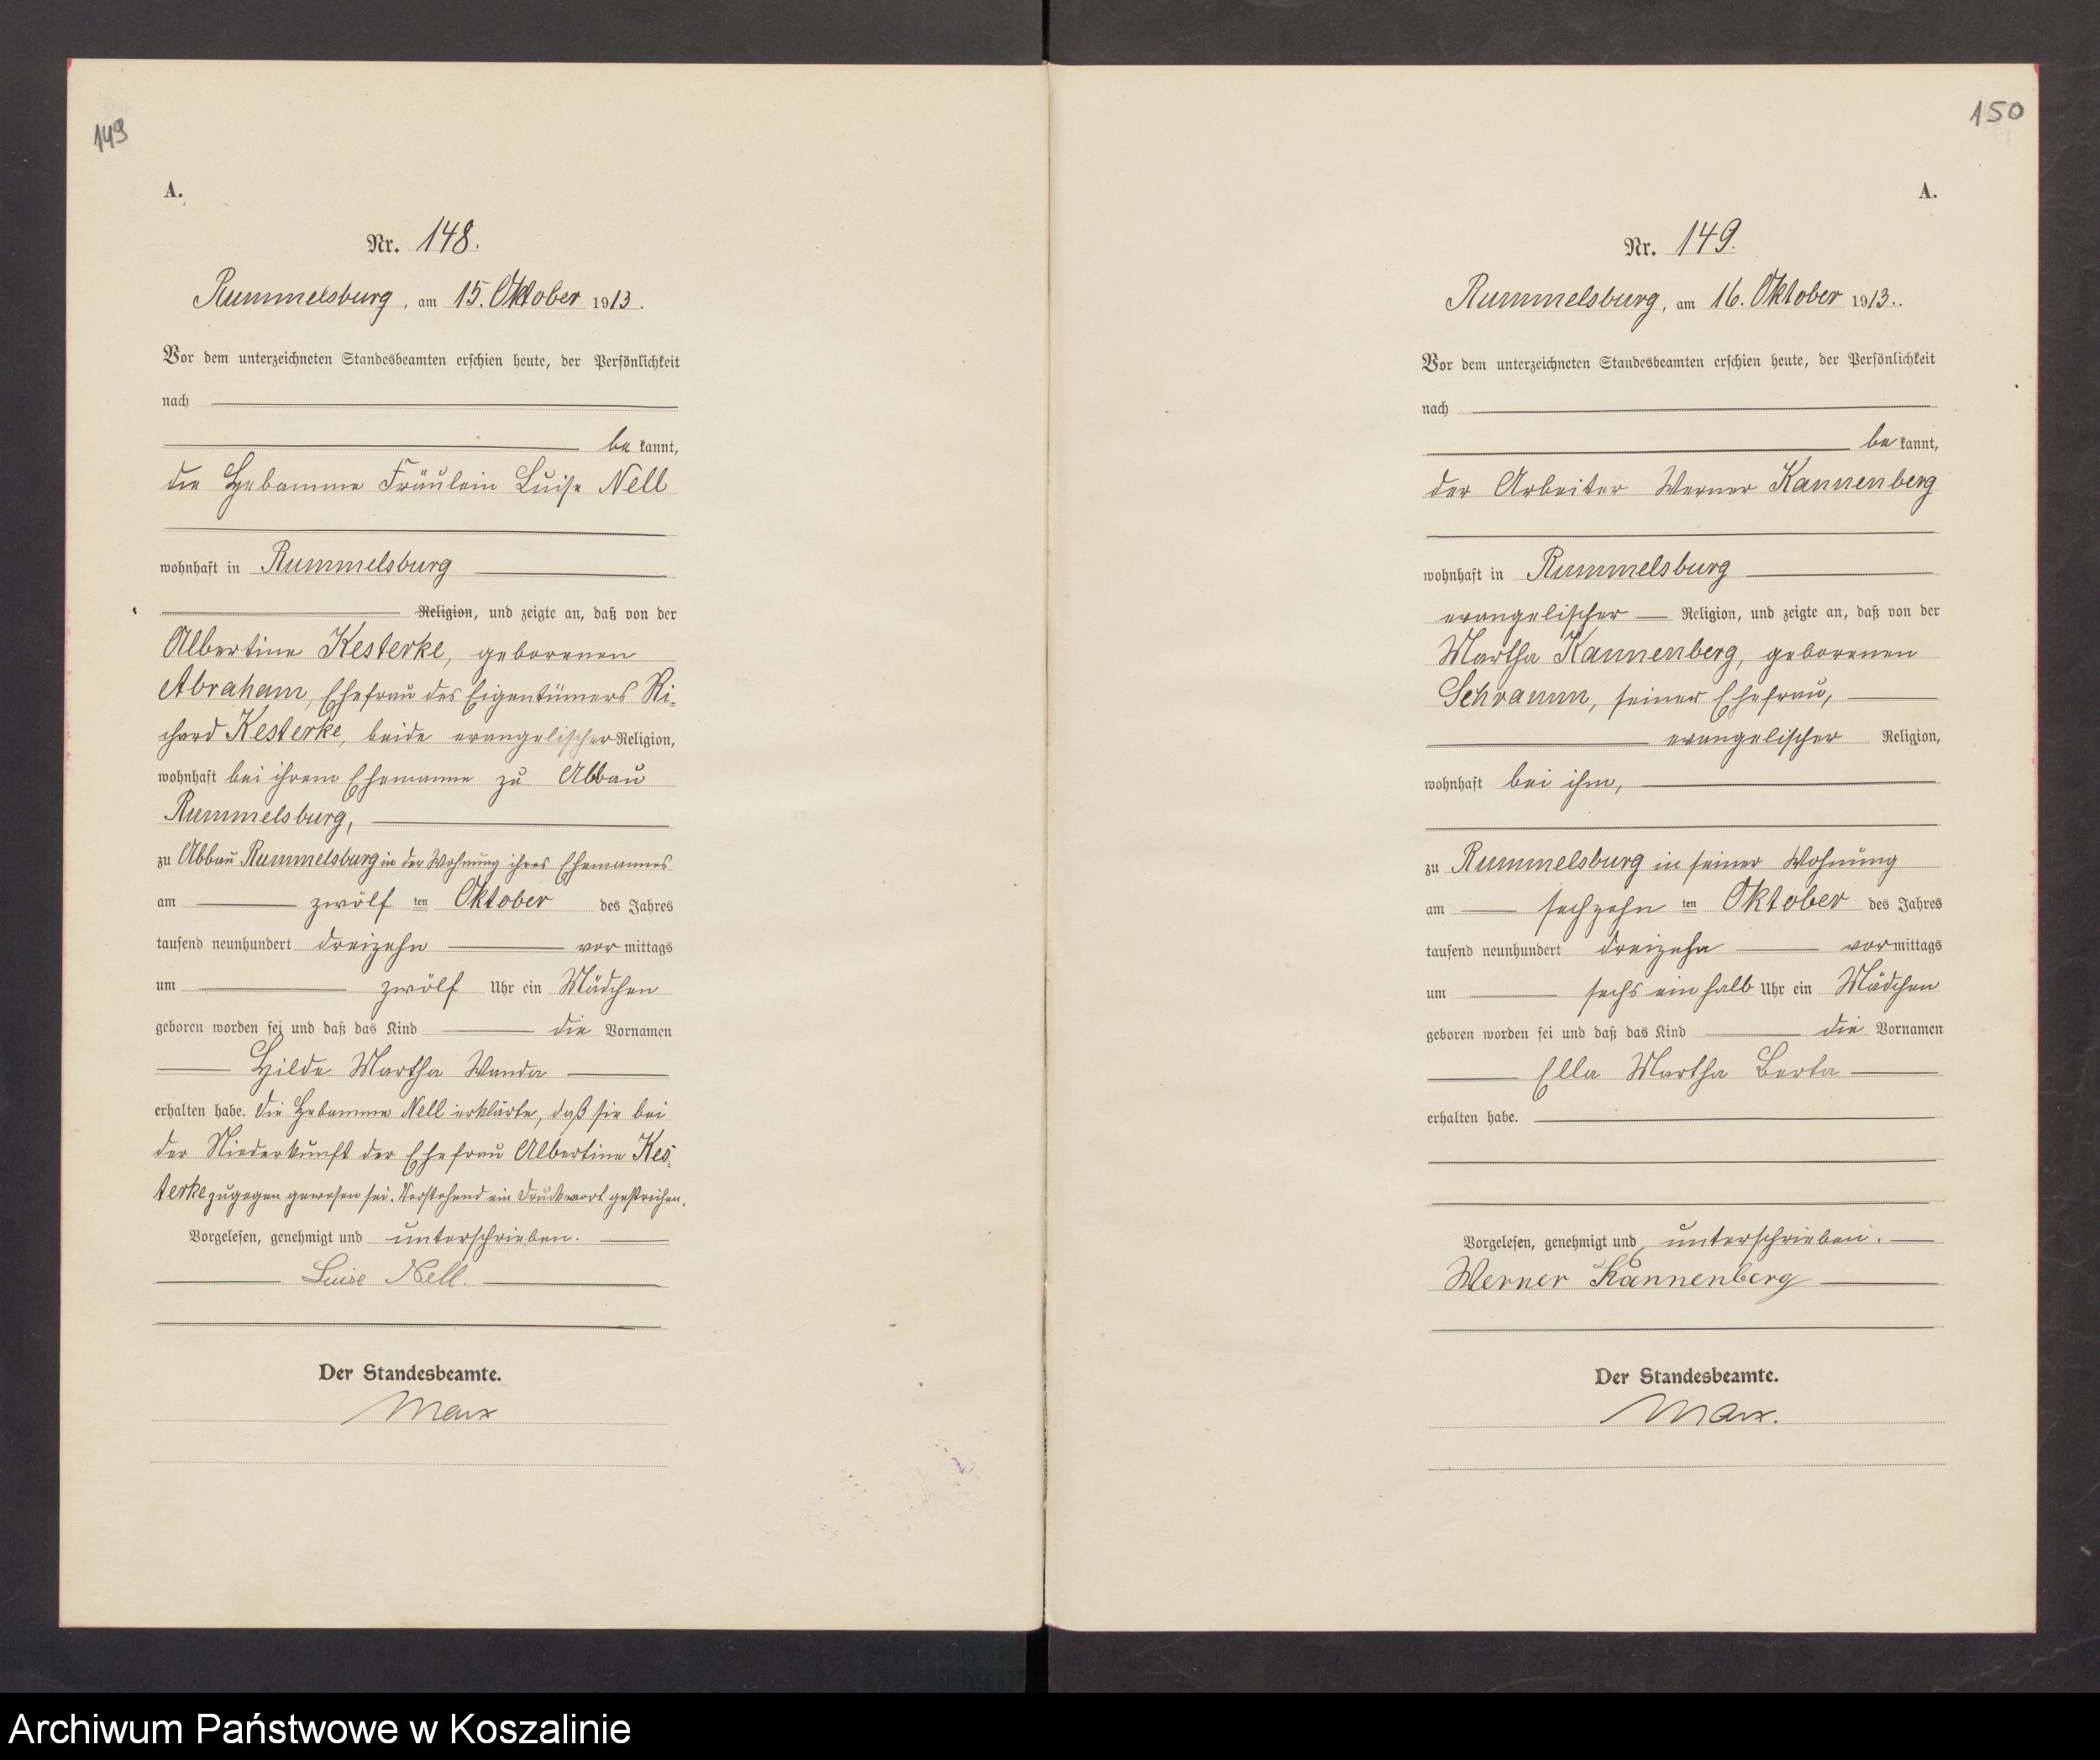 149
A.
Nr. 148.
Rummelsburg, am 15. Oktober 1913.
Vor dem unterzeichneten Standesbeamten erschien heute, der Persönlichkeit
nach
be kannt,
die Hebamme Fräulein Luise Nell
wohnhaft in Rummelsburg
Religion, und zeigte an, daß von der
Albertine Kesterke, geborenen
Abraham, Ehefrau des Eigentümers Ri-
chard Kesterke, beide evangelischer Religion,
wohnhaft bei ihrem Ehemanne zu Abbau
Rummelsburg,
zu Abbau Rummelsburg in der Wohnung ihres Ehemannes
am zwölf ten Oktober des Jahres
tausend neunhundert dreizehn vor mittags
um zwölf Uhr ein Mädchen
geboren worden sei und daß das Kind die Vornamen
Hilde Martha Wanda
erhalten habe. Die Hebamme Nell erklärte, daß sie bei
der Niederkunft der Ehefrau Albertine Kes-
terke zugegen gewesen sei. Vorstehend ein Druckwort gestrichen.
Vorgelesen, genehmigt und unterschrieben.
Luise Nell.
Der Standesbeamte.
Marx
150
A.
Nr. 149.
Rummelsburg, am 16. Oktober 1913.
Vor dem unterzeichneten Standesbeamten erschien heute, der Persönlichkeit
nach
be kannt,
der Arbeiter Werner Kannenberg
wohnhaft in Rummelsburg
evangelischer Religion, und zeigte an, daß von der
Martha Kannenberg, geborenen
Schramm, seiner Ehefrau,
evangelischer Religion,
wohnhaft bei ihm,
zu Rummelsburg in seiner Wohnung
am sechzehn ten Oktober des Jahres
tausend neunhundert dreizehn vor mittags
um sechs ein halb Uhr ein Mädchen
geboren worden sei und daß das Kind die Vornamen
Ella Martha Berta
erhalten habe.
Vorgelesen, genehmigt und unterschrieben.
Werner Kannenberg
Der Standesbeamte.
Marx.
Archiwum Państwowe w Koszalinie